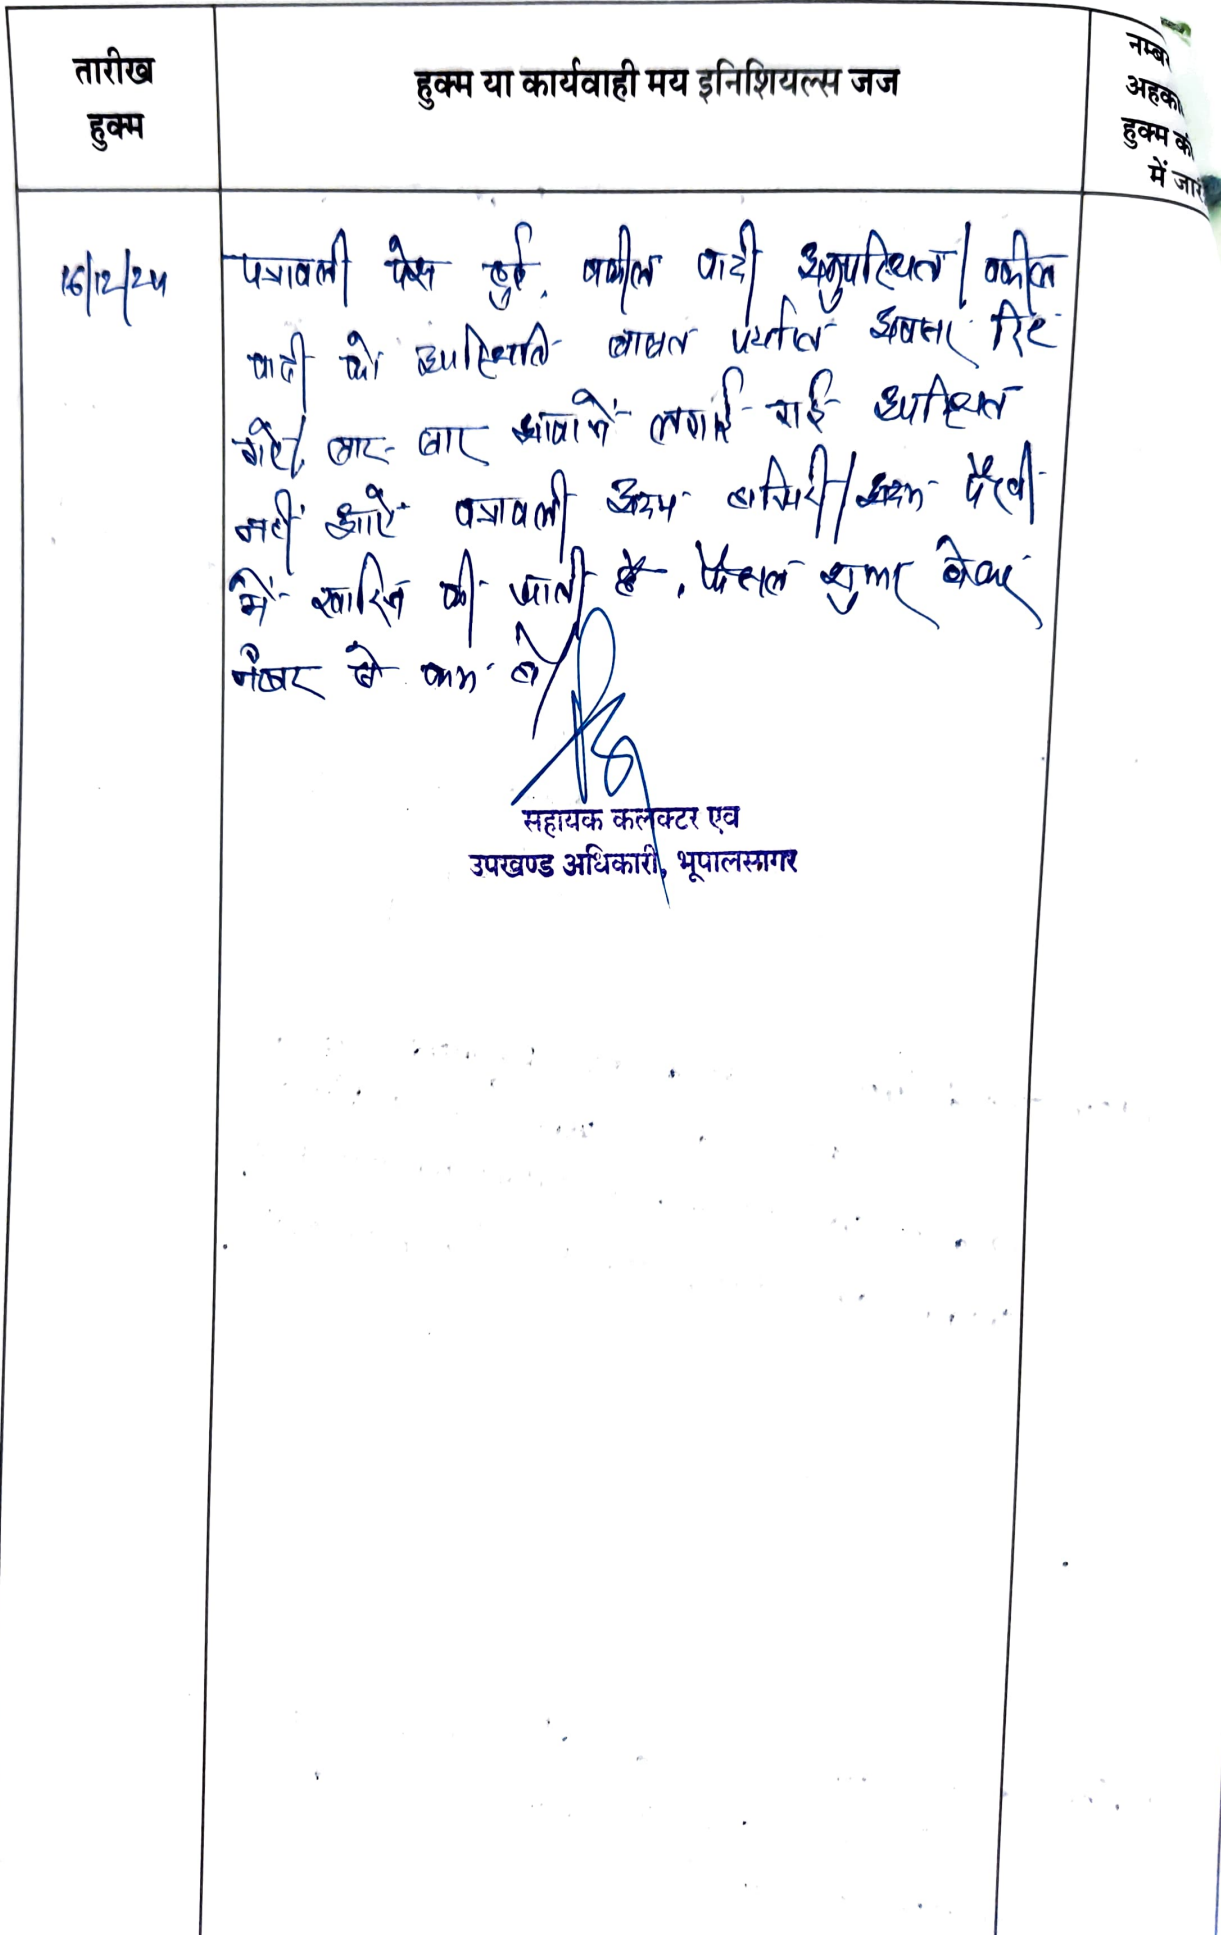 तारीख
हुक्म
हुक्म या कार्यवाही मय इनिशियल्स जज
नम्बर
अहका
हुक्म की
में जारी
16/12/24
पत्रावली पेश हुई, वकील वादी अनुपस्थित। वकील
वादी को उपस्थिति बाबत पर्याप्त अवसर दिए
गए। बार-बार आवाजें लगाई गई उपस्थित
नहीं आऐ पत्रावली अदम हाजिरी/अदम पैरवी
में खारिज की जाती है, फैसल शुमार होकर
नंबर से कम हो
सहायक कलक्टर एव
उपखण्ड अधिकारी, भूपालसागर